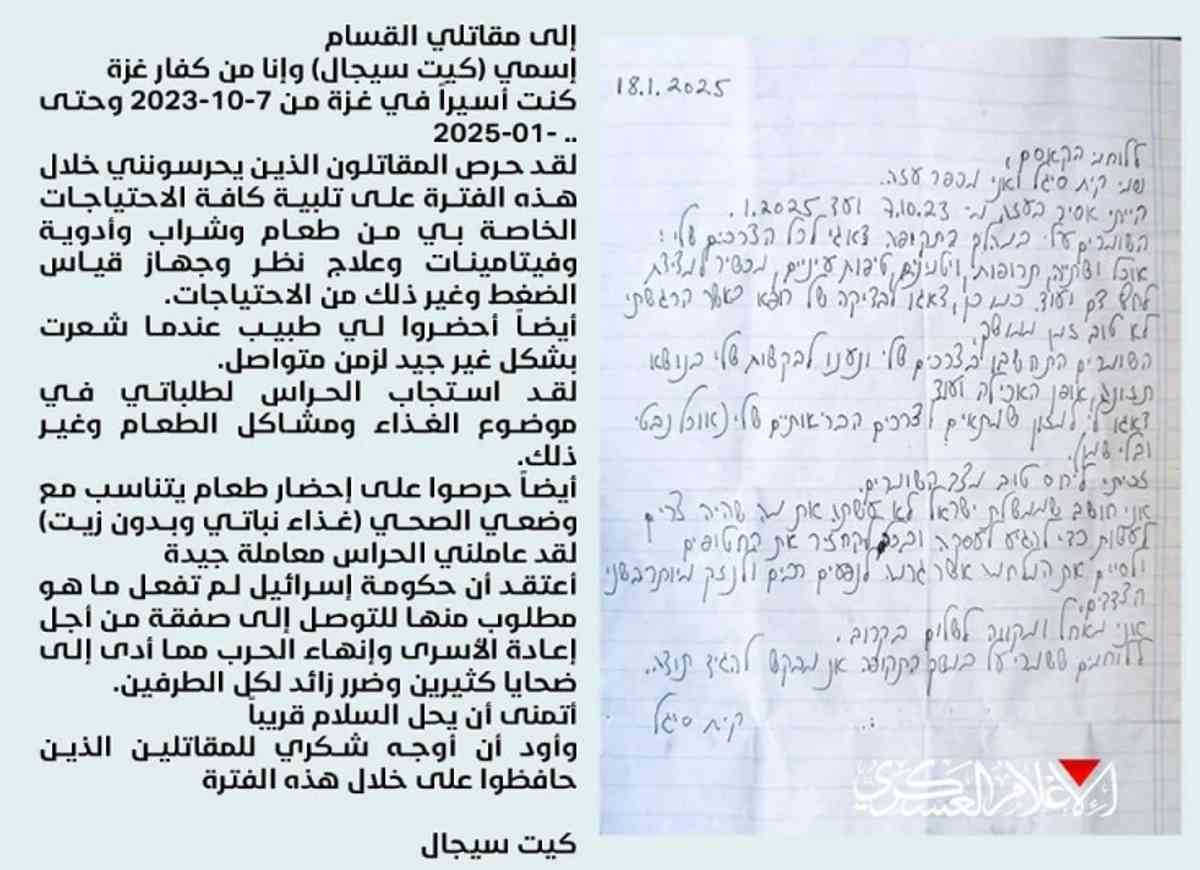 إلى مقاتلي القسام
إسمي (كيت سيجال) وإنا من كفار غزة
كنت أسيراً في غزة من 7-10-2023 وحتى
.. -01-2025
لقد حرص المقاتلون الذين يحرسونني خلال
هذه الفترة على تلبية كافة الاحتياجات
الخاصة بي من طعام وشراب وأدوية
وفيتامينات وعلاج نظر وجهاز قياس
الضغط وغير ذلك من الاحتياجات.
أيضاً أحضروا لي طبيب عندما شعرت
بشكل غير جيد لزمن متواصل.
لقد استجاب الحراس لطلباتي في
موضوع الغذاء ومشاكل الطعام وغير
ذلك.
أيضاً حرصوا على إحضار طعام يتناسب مع
وضعي الصحي (غذاء نباتي وبدون زيت)
لقد عاملني الحراس معاملة جيدة
أعتقد أن حكومة إسرائيل لم تفعل ما هو
مطلوب منها للتوصل إلى صفقة من أجل
إعادة الأسرى وإنهاء الحرب مما أدى إلى
ضحايا كثيرين وضرر زائد لكل الطرفين.
أتمنى أن يحل السلام قريباً
وأود أن أوجه شكري للمقاتلين الذين
حافظوا على خلال هذه الفترة
كيت سيجال
18.1.2025
ללוחמי הקסאם,
שמי קית סיגל ואני מכפר עזה.
הייתי אסיר בעזה מ- 7.10.23 ועד 1.2025.
השומרים עלי במהלך בתקופה דאגו לכל הצרכים שלי:
אוכל ושתיה, תרופות, ויטמינים, טיפות עיניים, מכשיר למדידת
לחץ דם ועוד. כמו כן, דאגו לבדיקה של רופא כאשר הרגשתי
לא טוב זמן ממושך.
השומרים התחשבו בצרכים שלי ונענו לבקשות שלי בנושא
תזונה, אופן האכילה ועוד
דאגו לי למזון שמתאים לצרכים הבריאותיים שלי (אוכל נבטי
ובלי שמן).
זכיתי ליחס טוב מצד השומרים.
אני חושב שממשלת ישראל לא עשתה את מה שהיה צריך
לעשות כדי להגיע לעסקה ובכך להחזיר את החטופים
ולסיים את המלחמה אשר גרמה לנפגעים רבים ולנזק מיותר בשני
הצדדים.
אני מאחל ומקווה לשלום בקרוב.
ללוחמים ששמרו עלי במשך התקופה אני מבקש להגיד תודה.
קית סיגל
الإعلام العسكري